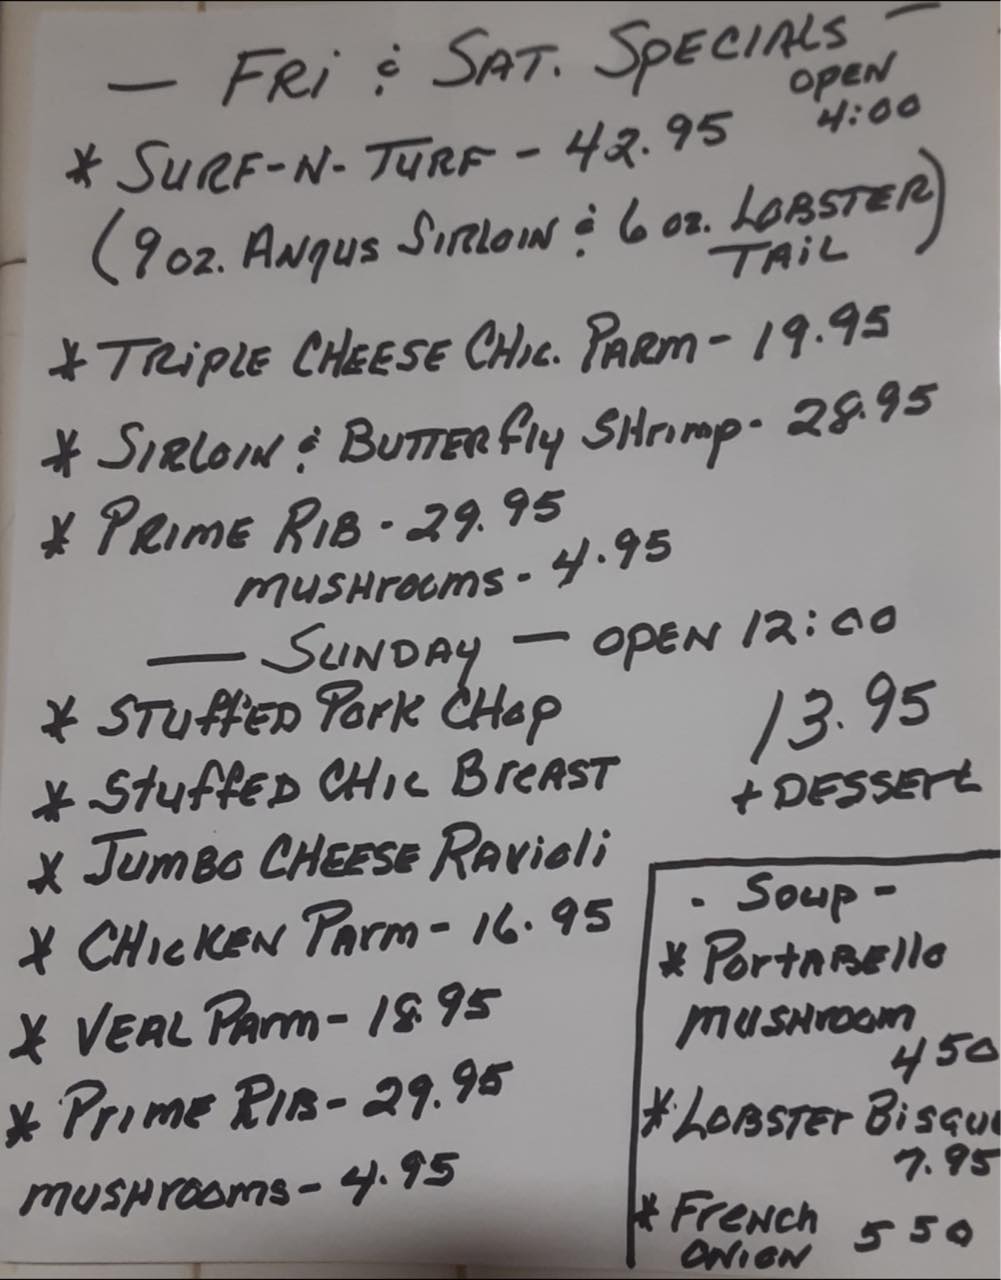 — FRi & SAT. SPECIALS —
OPEN
4:00
* SURF-N-TURF - 42.95
(9 oz. ANgUS SIRLOIN & 6 oz. LOBSTER)
TAiL
* TRiPLE CHEESE CHIC. PARM - 19.95
* SIRLOIN & BUTTERfly SHrimp - 28.95
* PRIME RIB - 29.95
MUSHrooms - 4.95
— SUNDAY — OPEN 12:00
* STUffED Pork CHop
* StuffED CHIC BrEAST
13.95
+ DESSErt
* JUMBO CHEESE RAVioli
* CHICKEN PArm - 16.95
* VEAL PArm - 18.95
* PriME RIB - 29.95
MUSHrooms - 4.95
- Soup -
* PortABEllo
MUSHroom
4 50
* LOBSTEr BiSQU
7.95
* FrENCH
ONION 5 50